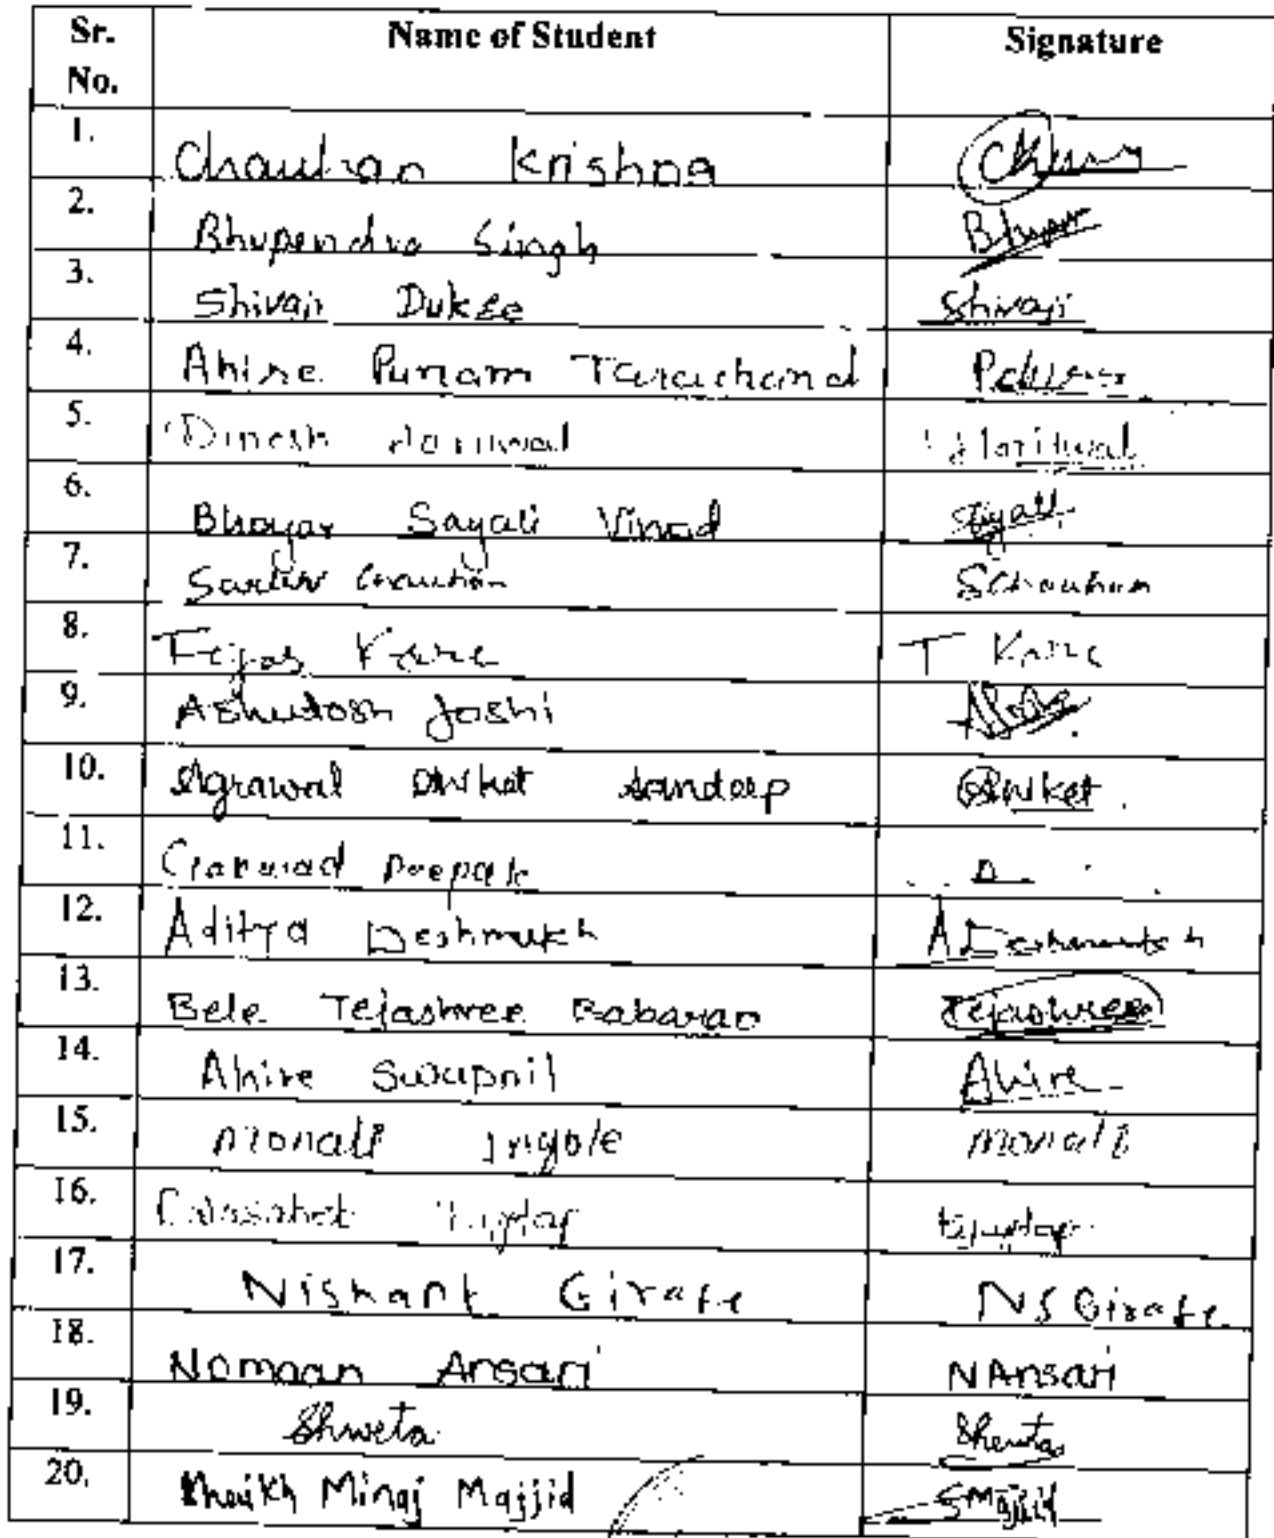 Sr. No. Name of Student Signature
1. Chauhan Krishna
2. Bhupendra Singh Bhupen
3. Shivaji Dukse Shivaji
4. Ahire Punam Tarachand
5. Dinesh Hariwal
6. Bhoyar Sayali Vinod Sayali
7. Chauhan SChauhan
8. Tejas Kane T Kane
9. Ashutosh Joshi
10. Agrawal Aniket Sandeep Aniket
11. Gaikwad Deepak D
12. Aditya Deshmukh A Deshmukh
13. Bele Tejashree Babarao Tejashree
14. Ahire Swapnil Ahire
15. Monali Ingole Monali
16.
17. Nishant Girase NS Girase
18. Nomaan Ansari NAnsari
19. Shweta Shweta
20. Sheikh Minaj Majjid SMajjid